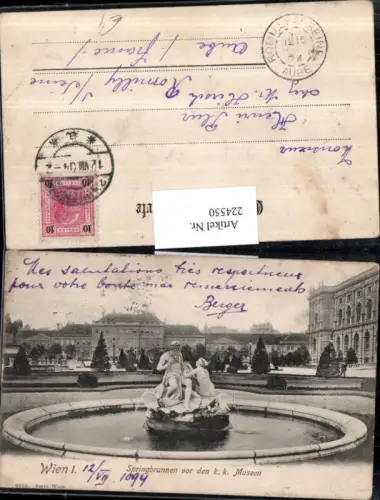 Monsieur
Henri
chez Mr.
Romilly s/Seine
Aube / France /
ROMILLY-S-SEINE
AUBE
12 VIII 04
10 10
10 10
Artikel Nr.
224550
Mes salutations très respectueux
pour votre bonté mes remerciements
Berger
Wien I. 12/VIII 1904
Springbrunnen vor den k. k. Museen